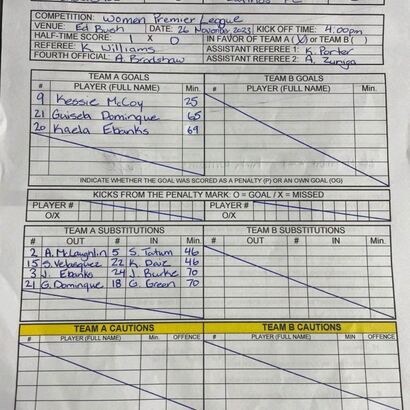 COMPETITION: Women Premier League
VENUE: Ed Bush DATE: 26 November 2023 KICK OFF TIME: 4:00pm
HALF-TIME SCORE: 1 X 0 IN FAVOR OF TEAM A (X) or TEAM B ( )
REFEREE: K. Williams ASSISTANT REFEREE 1: K. Porter
FOURTH OFFICIAL: A. Bradshaw ASSISTANT REFEREE 2: A. Zuniga
TEAM A GOALS TEAM B GOALS
# PLAYER (FULL NAME) Min. # PLAYER (FULL NAME) Min.
9 Kessie McCoy 25
21 Guisela Domingue 65
20 Kaela Ebanks 69
INDICATE WHETHER THE GOAL WAS SCORED AS A PENALTY (P) OR AN OWN GOAL (OG)
KICKS FROM THE PENALTY MARK: O = GOAL / X = MISSED
PLAYER # PLAYER #
O/X O/X
TEAM A SUBSTITUTIONS TEAM B SUBSTITUTIONS
# OUT # IN Min. # OUT # IN Min.
2 A. McLaughlin 5 S. Tatum 46
15 S. Velasquez 22 K. Daiz 46
3 J. Ebanks 24 J. Burke 70
21 G. Domingue 18 G. Green 70
TEAM A CAUTIONS TEAM B CAUTIONS
# PLAYER (FULL NAME) Min OFFENCE # PLAYER (FULL NAME) MIN OFFENCE